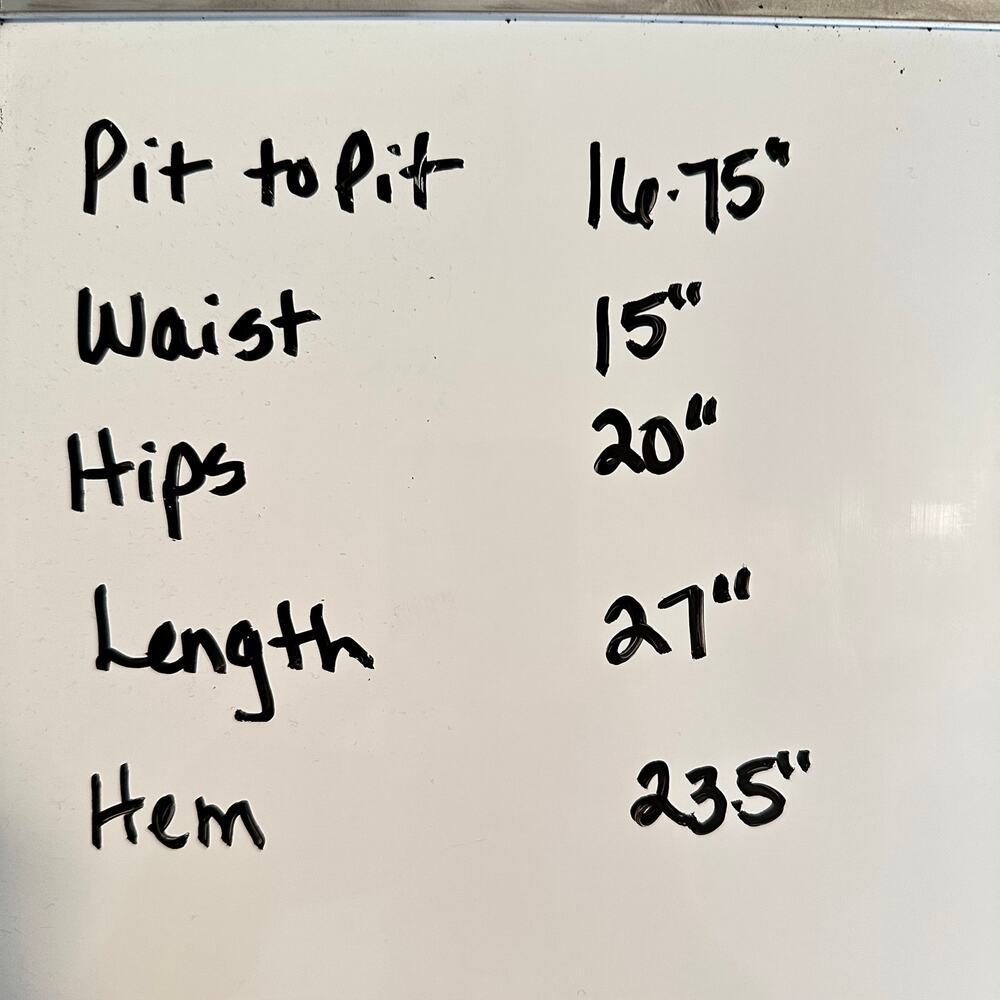 Pit to Pit 16.75"
Waist 15"
Hips 20"
Length 27"
Hem 23.5"